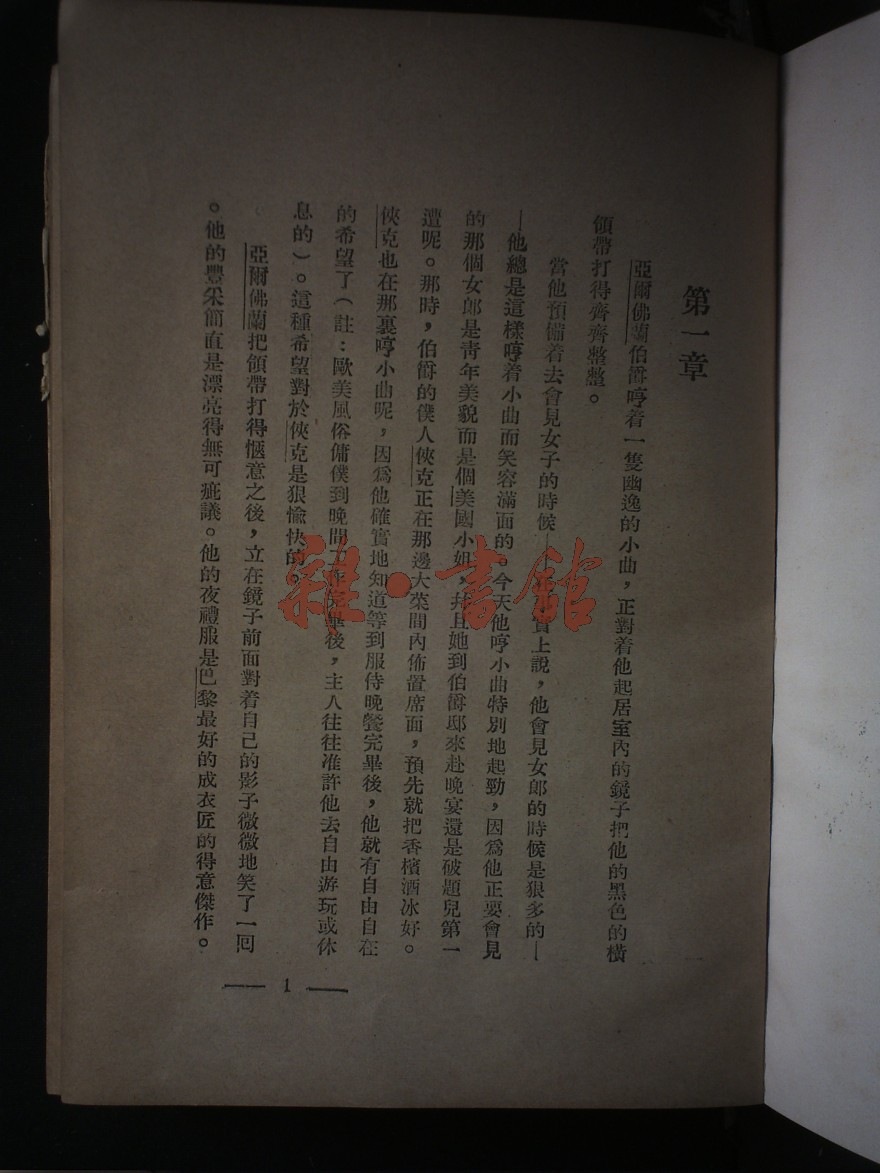 第一章
亞爾佛蘭伯爵哼着一隻幽逸的小曲，正對着他起居室內的鏡子把他的黑色的橫
領帶打得齊齊整整。
當他預備着去會見女子的時候—實上說，他會見女郎的時候是狠多的—
—他總是這樣哼着小曲而笑容滿面的。今天他哼小曲特別地起勁，因爲他正要會見
的那個女郎是靑年美貌而是個美國小姐，幷且她到伯爵邸來赴晚宴還是破題兒第一
遭呢。那時，伯爵的僕人俠克正在那邊大菜間內佈置席面，預先就把香檳酒冰好。
俠克也在那裏哼小曲呢，因爲他確實地知道等到服侍晚餐完畢後，他就有自由自在
的希望了（註：歐美風俗傭僕到晚間工作完畢後，主人往往准許他去自由游玩或休
息的）。這種希望對於俠克是狠愉快的
亞爾佛蘭把領帶打得愜意之後，立在鏡子前面對着自己的影子微微地笑了一囘
。他的豐采簡直是漂亮得無可疵議。他的夜禮服是巴黎最好的成衣匠的得意傑作。
— 1 —
雜·書館